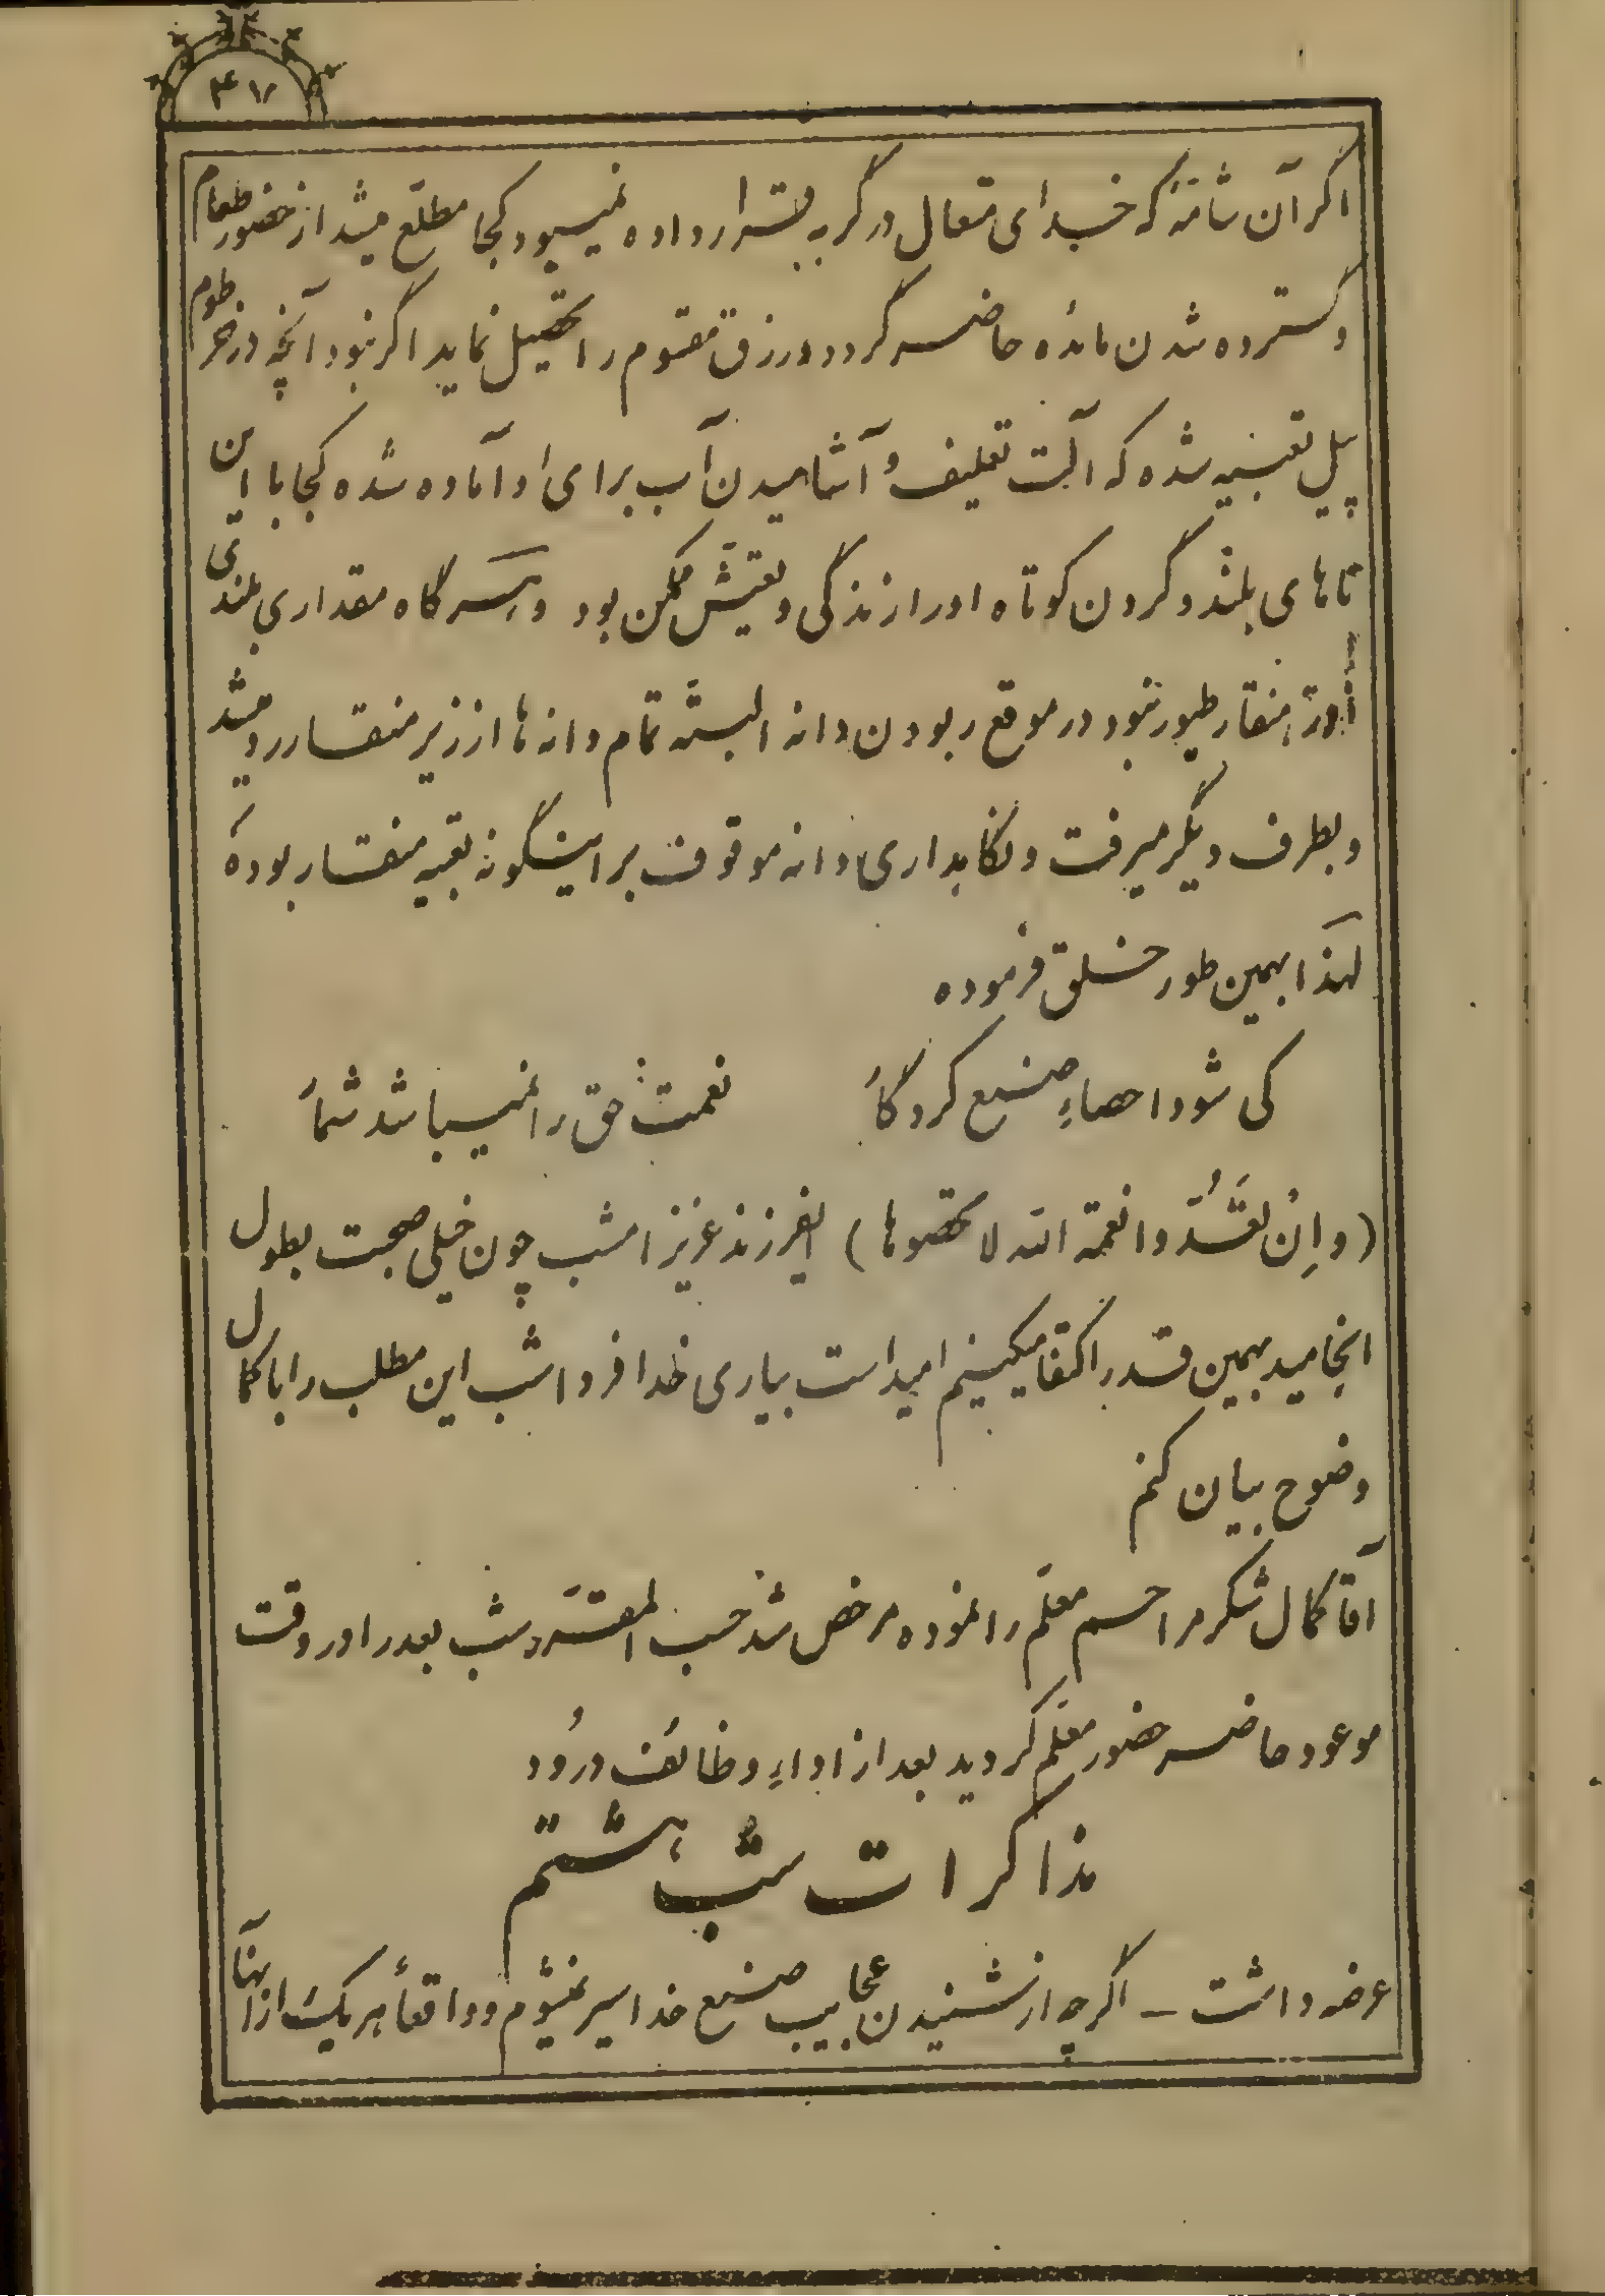 ۴۷
اگر آن شامّهٔ که خدای متعال در گربه قرار داده نمیبود کجا مطلّع میشد از حضور طعام
و گسترده شدن مائده حاضر گردد ورزق مقسوم را تحصیل نماید اگر نبود آنچه در خرطوم
پیل تعبیه شده که آلت تعلیف و آشامیدن آب برای او آماده شده کجا با این
پاهای بلند و گردن کوتاه او را زندگی و تعیّش ممکن بود و هرگاه مقداری بلندی
در منقار طیور نبود در موقع ربودن دانه البته تمام دانه ها از زیر منقار رد میشد
و بطرف دیگر میرفت و نگاهداری دانه موقوف بر اینگونه تعبیه منقار بوده
لهذا بهمین طور خلق فرموده
کی شود احصاءِ صنع کردگار نعمت حق را نمیباشد شمار
(وإِنْ تَعُدّوا نعمة الله لا تحصوها) ایفرزند عزیز امشب چون خیلی صحبت بطول
انجامید بهمین قدر اکتفا میکینم امید است بیاری خدا فردا شب این مطلب را با کمال
وضوح بیان کنم
آقا کمال تشکر مراحم معلّم را نموده مرخص شد حسب المقرّر شب بعد را در وقت
موعود حاضر حضور معلّم گردید بعد از اداءِ وظائف درُود
مذاکرات شب هشتم
عرضه داشت – اگرچه از شنیدن عجایب صنع خدا سیر نمیشوم و واقعاً هر یک از آنها